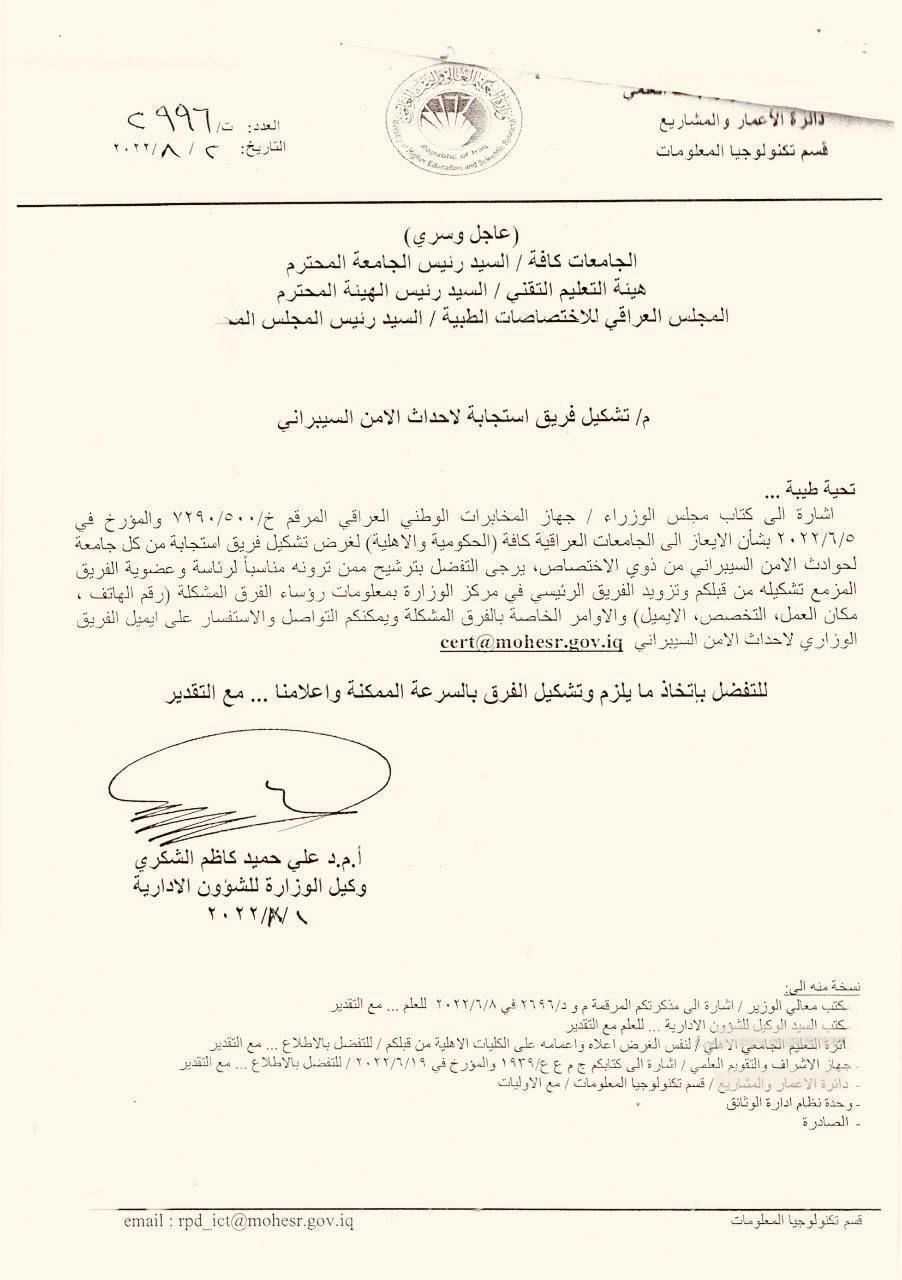 دائرة الأعمار والمشاريع
قسم تكنولوجيا المعلومات
Republic of Iraq
Higher Education and Scientific Research
العدد: ت/ ٢٩٩٦
التاريخ: ٢ / ٨ /٢٠٢٢
(عاجل وسري)
الجامعات كافة / السيد رئيس الجامعة المحترم
هيئة التعليم التقني / السيد رئيس الهيئة المحترم
المجلس العراقي للاختصاصات الطبية / السيد رئيس المجلس المح
م/ تشكيل فريق استجابة لاحداث الامن السيبراني
تحية طيبة ...
اشارة الى كتاب مجلس الوزراء / جهاز المخابرات الوطني العراقي المرقم خ/٧٢٩٠/٥٠٠ والمؤرخ في
٢٠٢٢/٦/٥ بشأن الايعاز الى الجامعات العراقية كافة (الحكومية والاهلية) لغرض تشكيل فريق استجابة من كل جامعة
لحوادث الامن السيبراني من ذوي الاختصاص، يرجى التفضل بترشيح ممن ترونه مناسباً لرئاسة وعضوية الفريق
المزمع تشكيله من قبلكم وتزويد الفريق الرئيسي في مركز الوزارة بمعلومات رؤساء الفرق المشكلة (رقم الهاتف ،
مكان العمل، التخصص، الايميل) والاوامر الخاصة بالفرق المشكلة ويمكنكم التواصل والاستفسار على ايميل الفريق
الوزاري لاحداث الامن السيبراني cert@mohesr.gov.iq
للتفضل بإتخاذ ما يلزم وتشكيل الفرق بالسرعة الممكنة واعلامنا ... مع التقدير
أ.م.د علي حميد كاظم الشكري
وكيل الوزارة للشؤون الادارية
٢٠٢٢/٨/١
نسخة منه الى:
- مكتب معالي الوزير / اشارة الى مذكرتكم المرقمة م و د/٢٦٩٦ في ٢٠٢٢/٦/٨ للعلم ... مع التقدير
- مكتب السيد الوكيل للشؤون الادارية ... للعلم مع التقدير
- دائرة التعليم الجامعي الاهلي / لنفس الغرض اعلاه واعمامه على الكليات الاهلية من قبلكم / للتفضل بالاطلاع ... مع التقدير
- جهاز الاشراف والتقويم العلمي / اشارة الى كتابكم ج م ع ع/١٩٣٩ والمؤرخ في ٢٠٢٢/٦/١٩ / للتفضل بالاطلاع ... مع التقدير
- دائرة الاعمار والمشاريع / قسم تكنولوجيا المعلومات / مع الاوليات
- وحدة نظام ادارة الوثائق
- الصادرة
قسم تكنولوجيا المعلومات
email : rpd_ict@mohesr.gov.iq